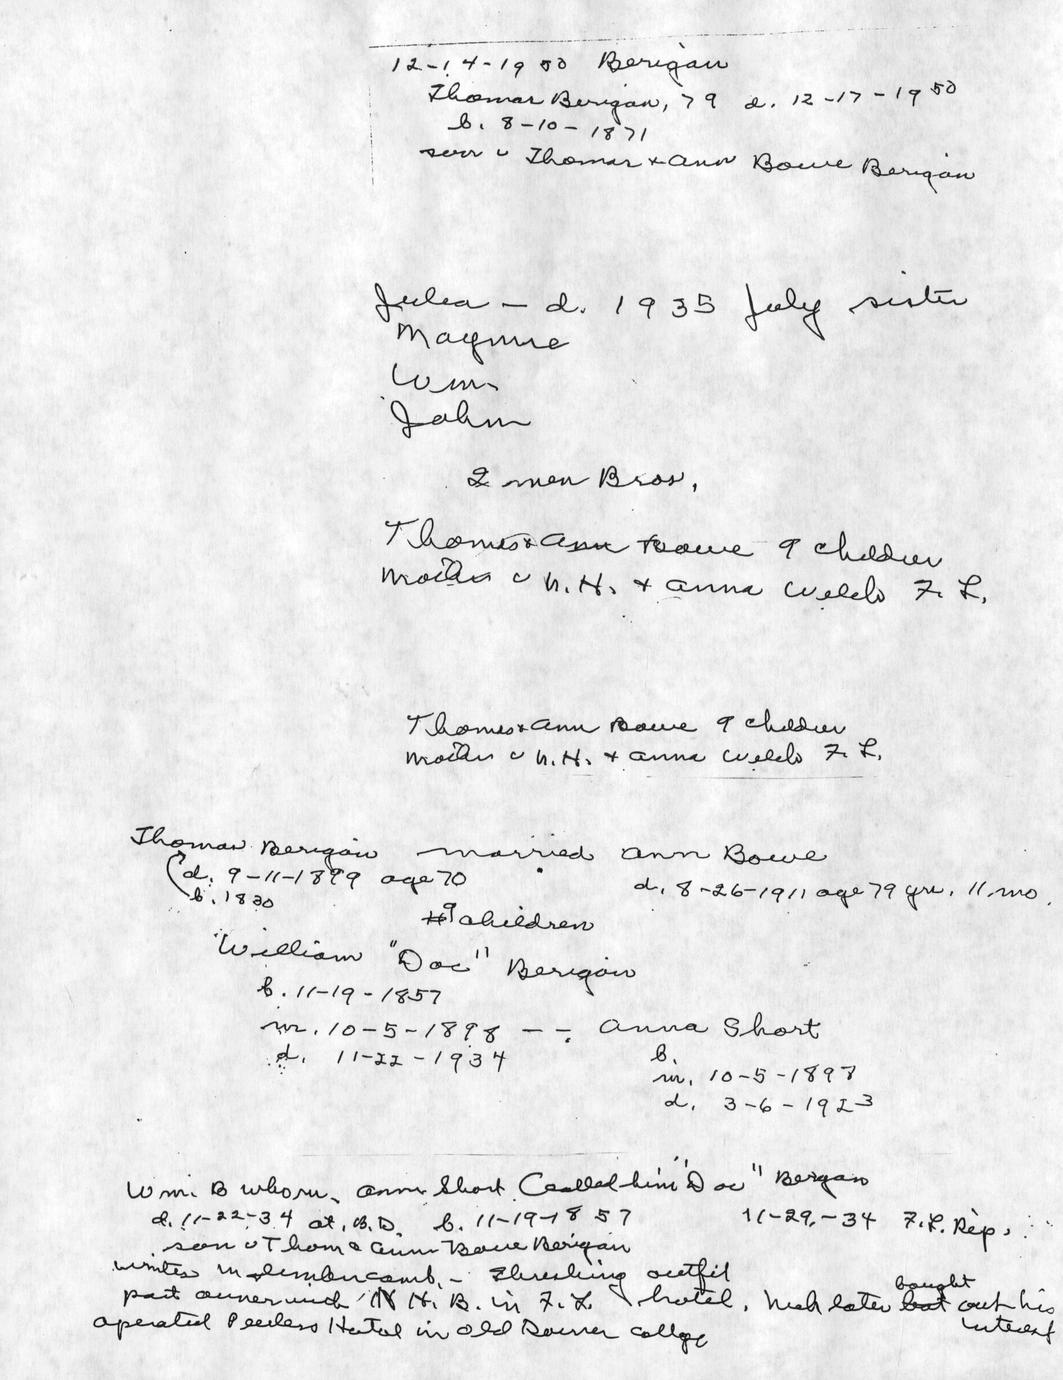 12-14-1950 Berigan
Thomas Berigan, 79 d. 12-17-1950
b. 8-10-1871
son o Thomas + Ann Bowe Berigan
Julia – d. 1935 July sister
Mayme
Wm.
John
2 men Bros.
Thomas + Ann Bowe 9 children
mother o N.H. + Anna Welch F. L.
Thomas + Ann Bowe 9 children
mother o N.H. + Anna Welch F. L.
Thomas Berigan married Ann Bowe
d. 9-11-1899 age 70 d. 8-26-1911 age 79 yrs. 11 mo.
b. 1830
9 children
William "Doc" Berigan
b. 11-19-1857
m. 10-5-1898 -- Anna Short
d. 11-22-1934 b.
m. 10-5-1898
d. 3-6-1923
Wm. B whom Ann Short Called him "Doc" Bergan
d. 11-22-34 at B.D. b. 11-19-1857 11-29-34 F.L. Rep.
son o Thom & Ann Bowe Berigan
winters in lumber camb. - Threshing outfit
part owner with N H. B. in F. L hotel. Nich later bought out his interest
operated Peerless Hotel in old Downer college